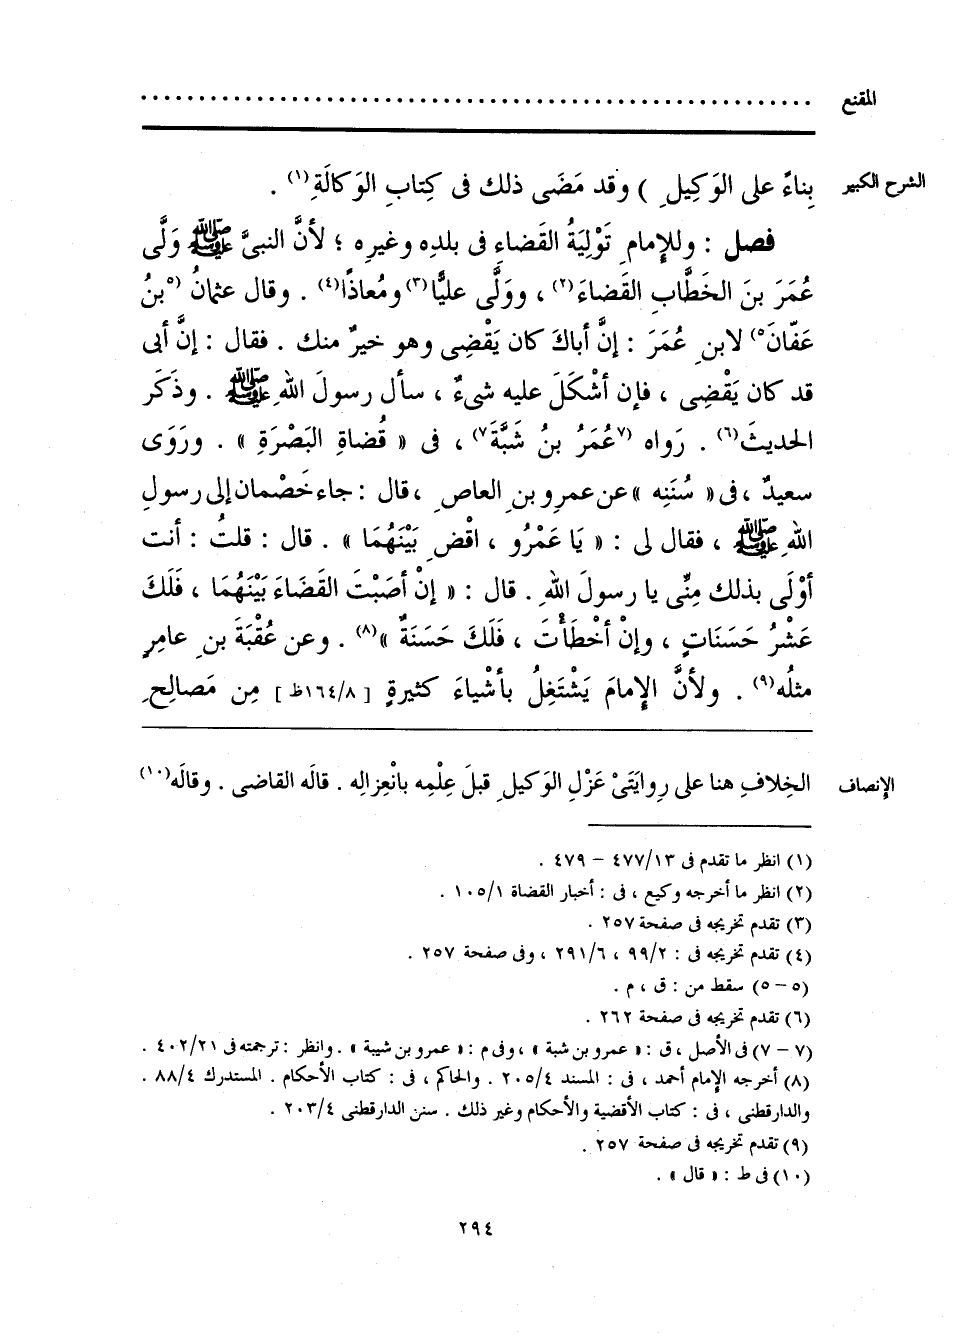 المقنع ........................................................
الشرح الكبير بِناءً على الوَكِيلِ ) وقد مَضَى ذلك فى كِتابِ الوَكالَةِ(١) .
فصل : وللإِمامِ تَوْلِيَةُ القَضاءِ فى بلدِه وغيرِه ؛ لأنَّ النبىَّ ﷺ وَلَّى
عُمَرَ بنَ الخَطَّابِ القَضاءَ(٢) ، ووَلَّى عليًّا(٣) ومُعاذًا(٤) . وقال عثمانُ (٥بنُ
عَفّانَ٥) لابنِ عُمَرَ : إنَّ أباكَ كان يَقْضِى وهو خيرٌ منك . فقال : إنَّ أبى
قد كان يَقْضِى ، فإن أشْكَلَ عليه شىءٌ ، سأل رسولَ اللهِ ﷺ . وذَكَر
الحديثَ(٦) . رَواه (٧عُمَرُ بنُ شَبَّةَ٧) ، فى « قُضاةِ البَصْرَةِ » . ورَوَى
سعيدٌ ، فى « سُنَنِه » عن عمرِو بنِ العاصِ ، قال : جاء خَصْمان إلى رسولِ
اللهِ ﷺ ، فقال لى : « يَا عَمْرُو ، اقْضِ بَيْنَهُمَا » . قال : قلتُ : أنت
أوْلَى بذلك مِنِّى يا رسولَ اللهِ . قال : « إنْ أصَبْتَ القَضَاءَ بَيْنَهُمَا ، فَلَكَ
عَشْرُ حَسَنَاتٍ ، وإنْ أخْطَأْتَ ، فَلَكَ حَسَنَةٌ »(٨) . وعن عُقْبَةَ بنِ عامِرٍ
مثلُه(٩) . ولأنَّ الإِمامَ يَشْتَغِلُ بأشْياءَ كثيرةٍ [ ١٦٤/٨ظ ] مِن مَصالِحِ
الإنصاف الخِلافِ هنا على رِوايَتَىْ عَزْلِ الوَكيلِ قبلَ عِلْمِه بانْعِزالِه . قالَه القاضى . وقالَه(١٠)
(١) انظر ما تقدم فى ٤٧٧/١٣ – ٤٧٩ .
(٢) انظر ما أخرجه وكيع ، فى : أخبار القضاة ١٠٥/١ .
(٣) تقدم تخريجه فى صفحة ٢٥٧ .
(٤) تقدم تخريجه فى : ٩٩/٢ ، ٢٩١/٦ ، وفى صفحة ٢٥٧ .
(٥ – ٥) سقط من : ق ، م .
(٦) تقدم تخريجه فى صفحة ٢٦٢ .
(٧ – ٧) فى الأصل ، ق : « عمرو بن شبة » ، وفى م : « عمرو بن شيبة » . وانظر : ترجمته فى ٤٠٢/٢١ .
(٨) أخرجه الإمام أحمد ، فى : المسند ٢٠٥/٤ . والحاكم ، فى : كتاب الأحكام . المستدرك ٨٨/٤ .
والدارقطنى ، فى : كتاب الأقضية والأحكام وغير ذلك . سنن الدارقطنى ٢٠٣/٤ .
(٩) تقدم تخريجه فى صفحة ٢٥٧ .
(١٠) فى ط : « قال » .
٢٩٤